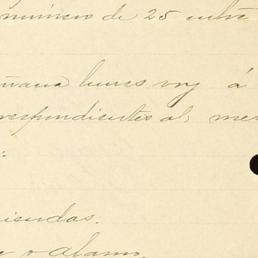 número de 25 entre
ñana lunes voy á
respondientes al mes
:
iendas.
e o alamo.